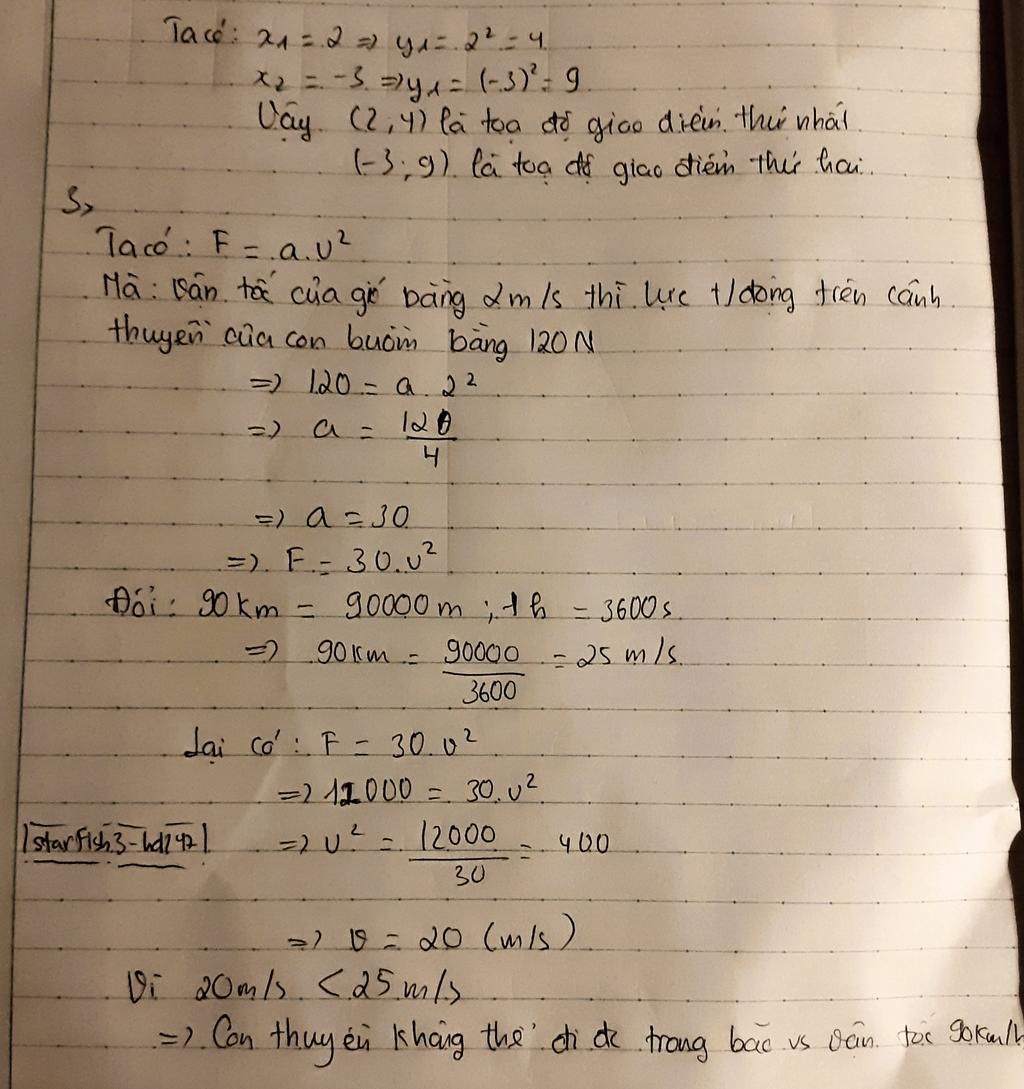 Ta có: x1 = 2 => y1 = 2² = 4
x2 = -3 => y1 = (-3)² = 9
Vậy (2,4) là tọa độ giao điểm thứ nhất
(-3;9) là toạ độ giao điểm thứ hai.
3,
Ta có: F = a.v²
Mà: vận tốc của gió bằng 2m/s thì lực t/động trên cánh
thuyền của con buồm bằng 120N
=> 120 = a.2²
=> a = 120/4
=> a = 30
=> F = 30.v²
Đổi: 90km = 90000m ; 1h = 3600s
=> 90km = 90000/3600 = 25 m/s
Lại có: F = 30.v²
=> 12000 = 30.v²
|starfish3-hd247| => v² = 12000/30 = 400
=> v = 20 (m/s)
Vì 20m/s < 25m/s
=> Con thuyền không thể đi đc trong bão vs vận tốc 90km/h